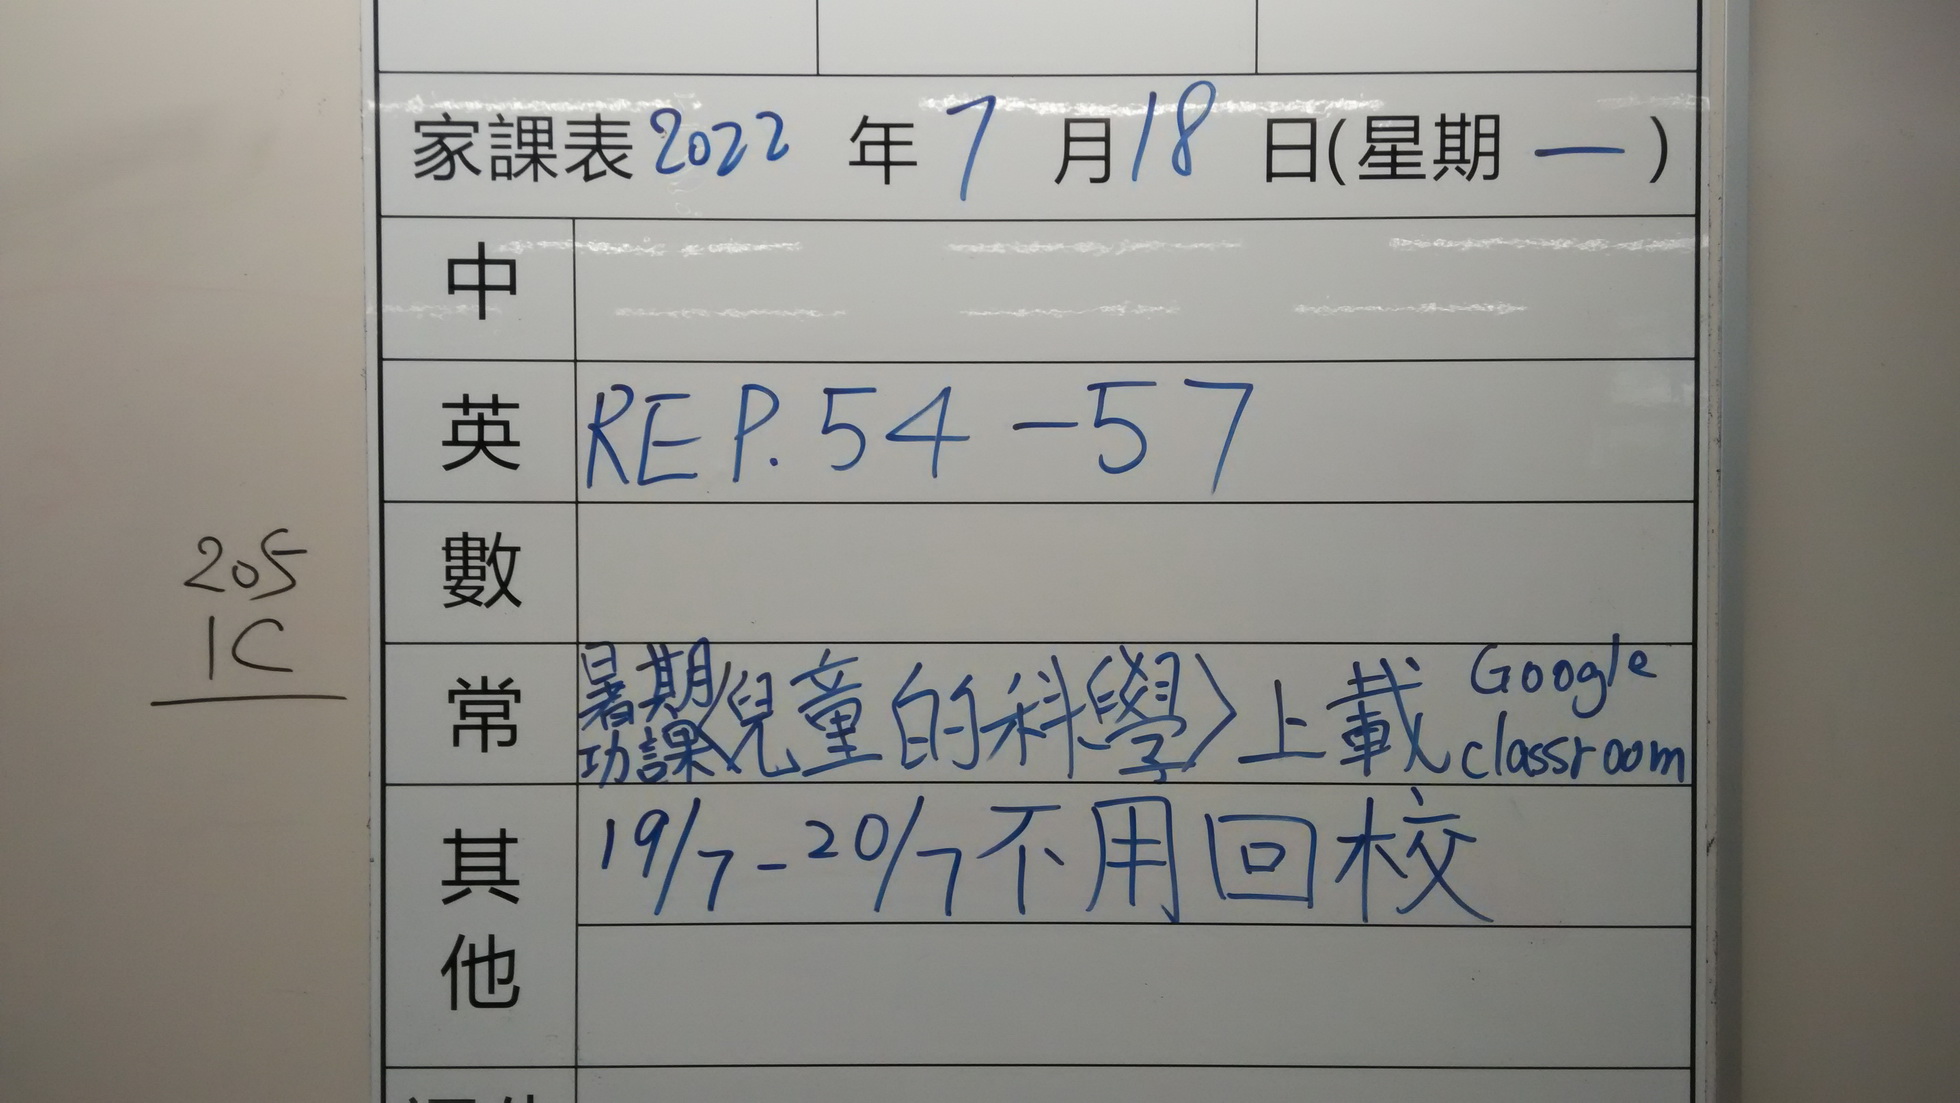 家課表 2022 年 7 月 18 日(星期 一 )
中
英 REP. 54-57
數
常 暑期功課〈兒童的科學〉上載 Google classroom
其他 19/7-20/7 不用回校
205
1C